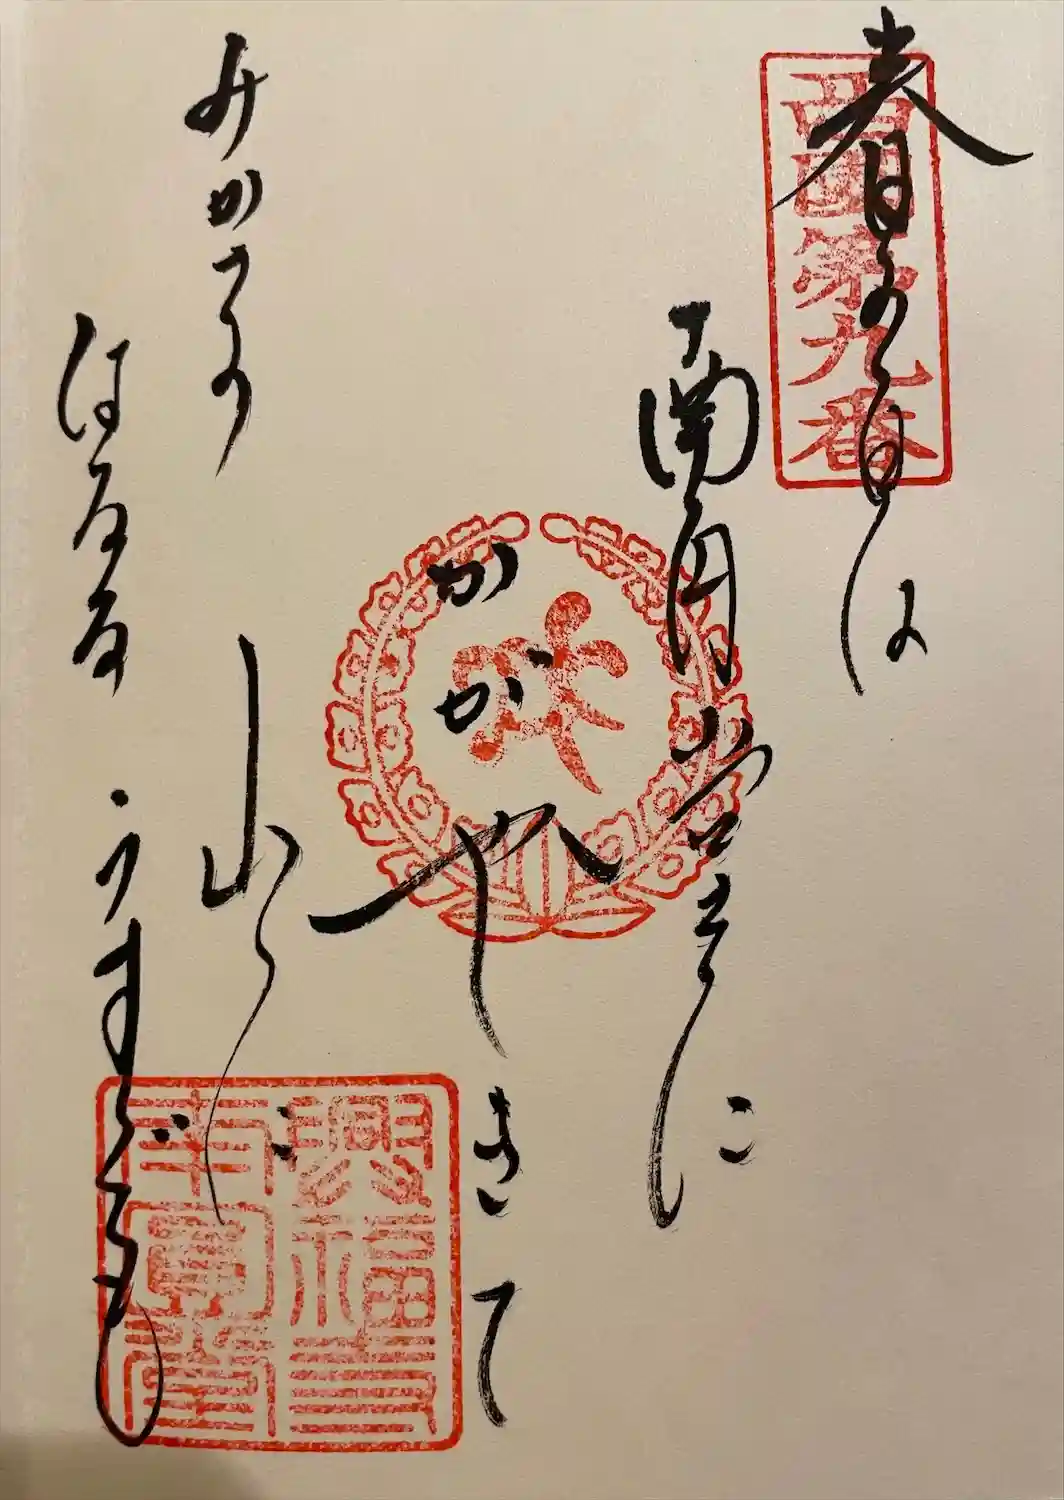 西國第九番
春の日は
南円堂に
かがやきて
みかさの
山に
はるる
うすぐも
興福寺
南圓堂